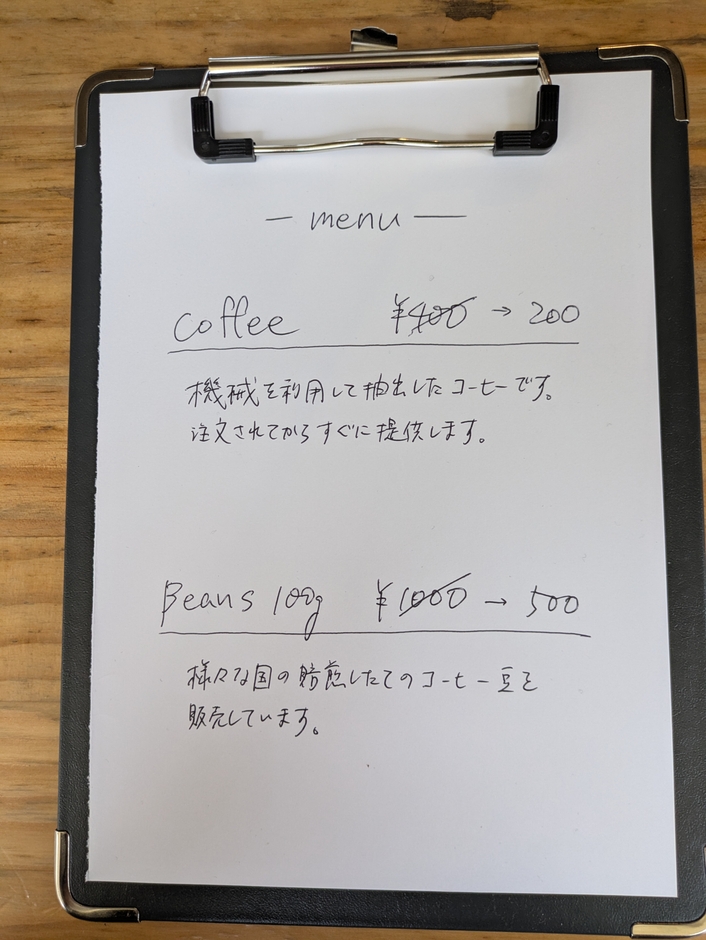 — menu —
coffee ¥400 → 200
機械を利用して抽出したコーヒーです。
注文されてからすぐに提供します。
Beans 100g ¥1000 → 500
様々な国の焙煎したてのコーヒー豆を
販売しています。